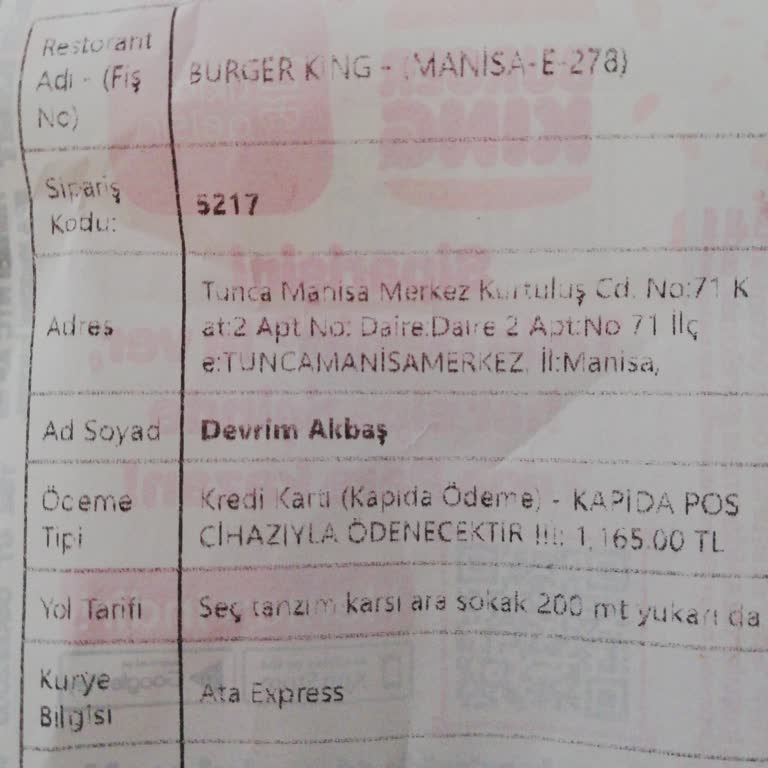 Restorant
Adı - (Fiş
No)
BURGER KING - (MANİSA-E-278)
Sipariş
Kodu:
5217
Adres
Tunca Manisa Merkez Kurtuluş Cd. No:71 K
at:2 Apt No: Daire:Daire 2 Apt:No 71 İlç
e:TUNCAMANİSAMERKEZ, İl:Manisa,
Ad Soyad
Devrim Akbaş
Ödeme
Tipi
Kredi Kartı (Kapıda Ödeme) - KAPIDA POS
CİHAZIYLA ÖDENECEKTİR !!!: 1,165.00 TL
Yol Tarifi
Seç tanzim karsı ara sokak 200 mt yukarı da
Kurye
Bilgisi
Ata Express